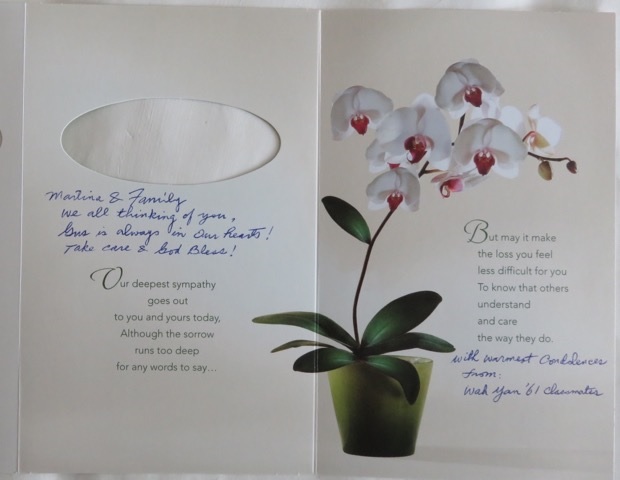 Martina & Family
We all thinking of you,
Gus is always in Our hearts!
Take care & God Bless!
Our deepest sympathy
goes out
to you and yours today,
Although the sorrow
runs too deep
for any words to say...
But may it make
the loss you feel
less difficult for you
To know that others
understand
and care
the way they do.
With warmest Condolences
From:
Wah Yan '61 Classmates